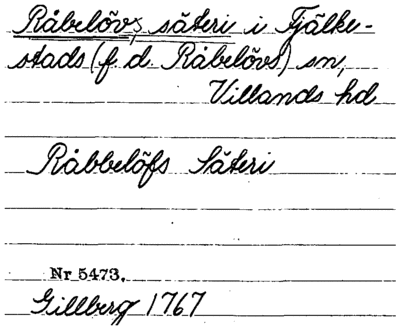 Råbelövs säteri i Fjälke-
stads (f d Råbelövs) sn,
Villands hd
Råbbelöfs Säteri
Nr 5473.
Gillberg 1767